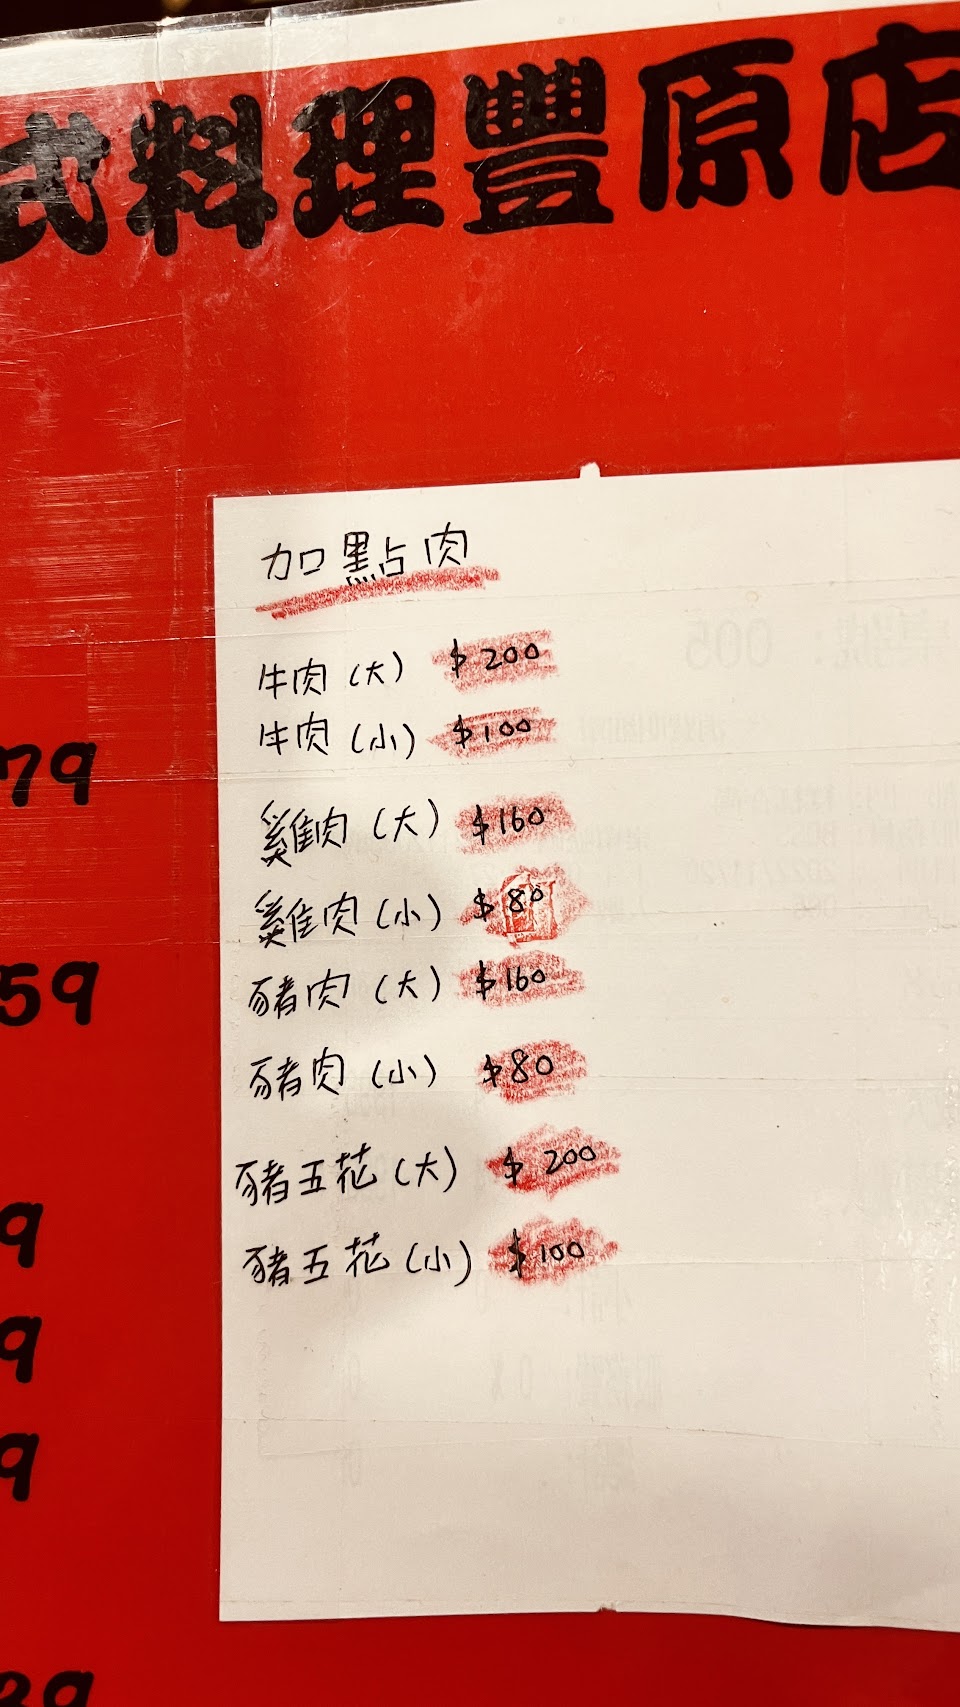 式料理豐原店
加點肉
牛肉(大) $200
牛肉(小) $100
雞肉(大) $160
雞肉(小) $80
豬肉(大) $160
豬肉(小) $80
豬五花(大) $200
豬五花(小) $100
79
59
9
9
9
39